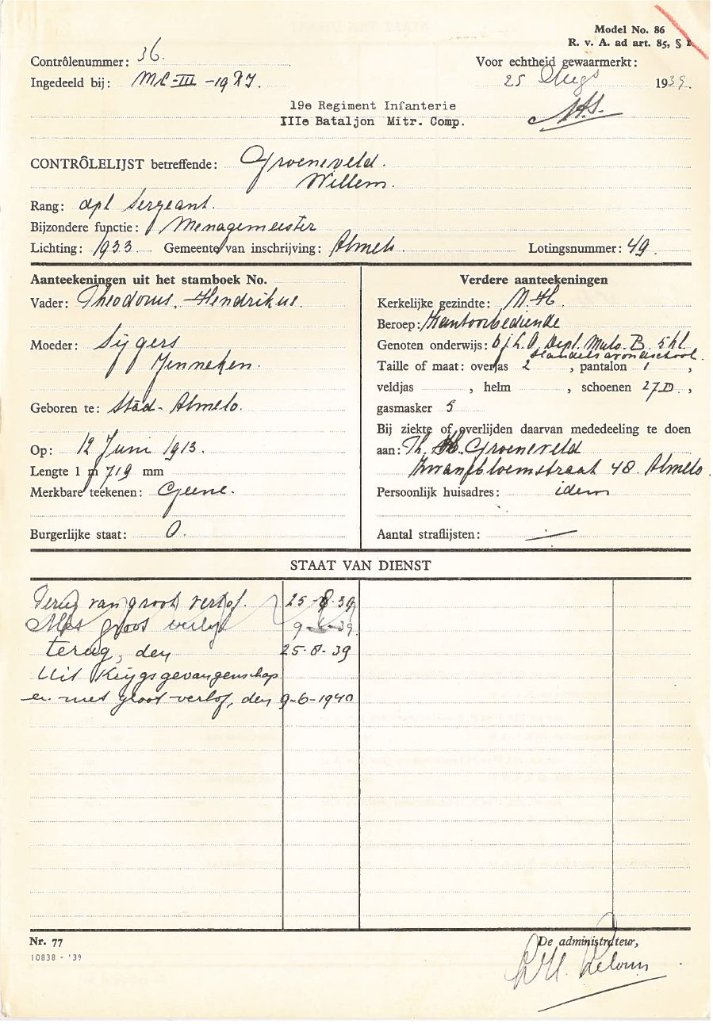 Model No. 86
R. v. A. ad art. 85, §
Contrôlenummer: 36.
Voor echtheid gewaarmerkt:
Ingedeeld bij: MC-III-19 R.I.
25 Aug 1939.
19e Regiment Infanterie
IIIe Bataljon Mitr. Comp.
CONTRÔLELIJST betreffende: Groeneveld.
Willem.
Rang: dpl Sergeant.
Bijzondere functie: Menagemeester
Lichting: 1933 Gemeente van inschrijving: Almelo Lotingsnummer: 49.
Aanteekeningen uit het stamboek No.
Vader: Theodorus-Hendrikus.
Moeder: Sijgers
Jenneken.
Geboren te: Stad-Almelo.
Op: 12 Juni 1913.
Lengte 1 m 719 mm
Merkbare teekenen: Geene.
Burgerlijke staat: O.
Verdere aanteekeningen
Kerkelijke gezindte: N.H.
Beroep: Kantoorbediende
Genoten onderwijs: 6 j. L.O. Dipl. Mulo. B. 5 kl.
Handelsavondschool.
Taille of maat: overjas 2, pantalon 1,
veldjas , helm , schoenen 27 D.,
gasmasker 5
Bij ziekte of overlijden daarvan mededeeling te doen
aan: Th. H. Groeneveld
Zwanebloemstraat 48. Almelo.
Persoonlijk huisadres: idem
Aantal straflijsten: —
STAAT VAN DIENST
Terug van groot verlof. 25-8-39
Met groot verlof 9-39.
terug, den 25-8-39
Uit Krijgsgevangenschap
en met groot verlof, den 9-6-1940
Nr. 77
10838 - '39
De administrateur,